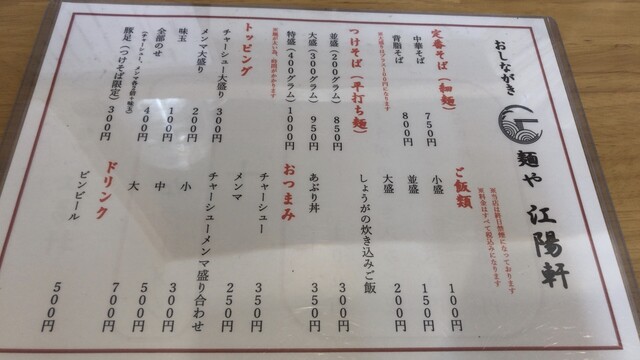 おしながき
麺や 江陽軒
※当店は終日禁煙になっております
※料金はすべて税込みになります
定番そば(細麺)
中華そば 750円
背脂そば 800円
つけそば(平打ち麺)
並盛(200グラム) 850円
大盛(300グラム) 950円
特盛(400グラム) 1000円
トッピング
チャーシュー大盛り 300円
メンマ大盛り 200円
味玉 100円
全部のせ 400円
(チャーシュー、メンマ各2個+味玉)
豚足(つけそば限定) 300円
ご飯類
小盛 100円
並盛 150円
大盛 200円
しょうがの炊き込みご飯 300円
あぶり丼 350円
おつまみ
チャーシュー 350円
メンマ 250円
チャーシューメンマ盛り合わせ
小 300円
中 500円
大 700円
ドリンク
ビンビール 500円